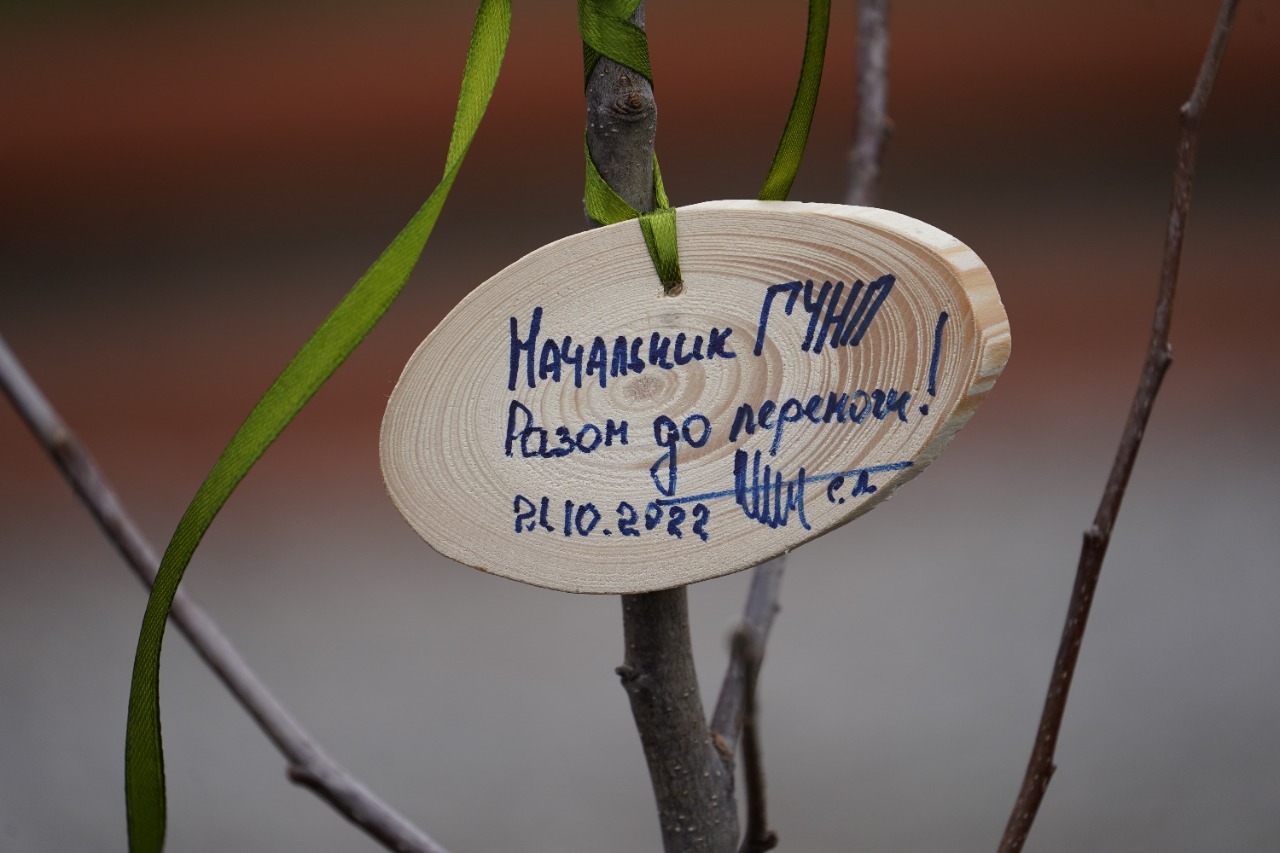 Начальник ГУНП
Разом до перемоги!
21.10.2022 с.п